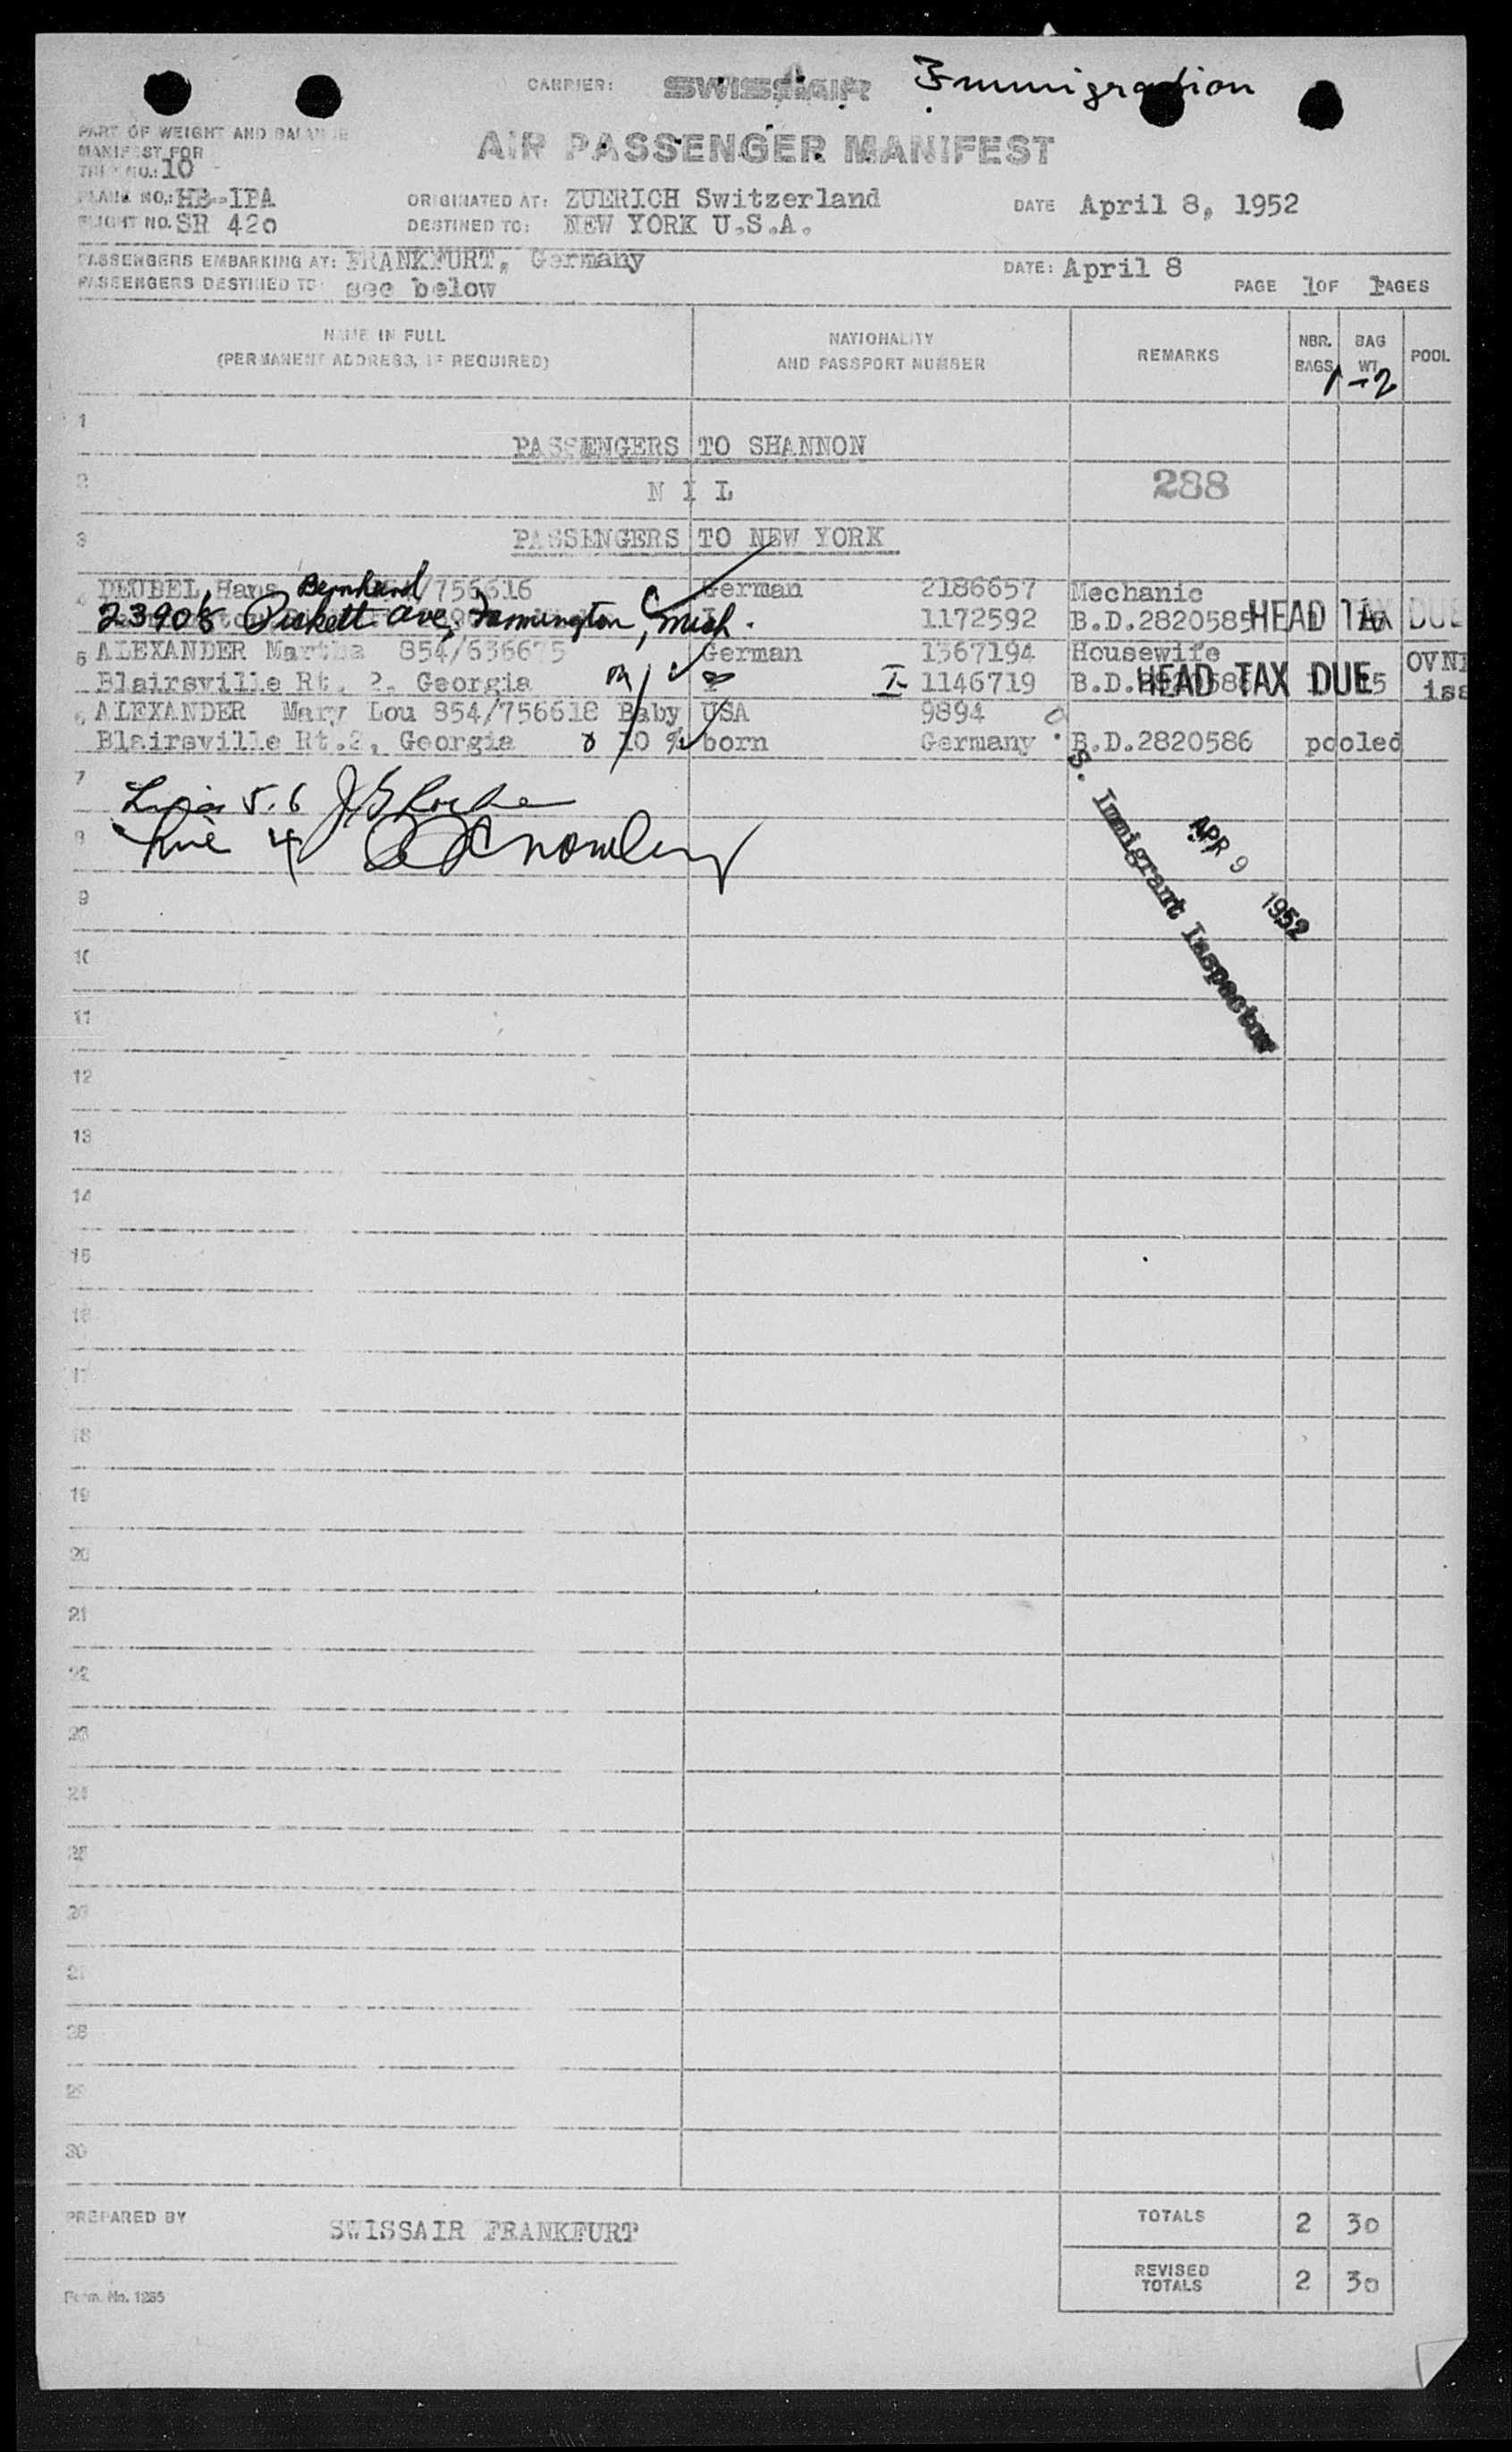 CARRIER: SWISSAIR Immigration
PART OF WEIGHT AND BALANCE
MANIFEST FOR
AIR PASSENGER MANIFEST
TRIP NO.: 10
PLANE NO.: HB-IPA ORIGINATED AT: ZUERICH Switzerland DATE April 8, 1952
FLIGHT NO. SR 420 DESTINED TO: NEW YORK U.S.A.
PASSENGERS EMBARKING AT: FRANKFURT, Germany DATE: April 8
PASSENGERS DESTINED TO: see below PAGE 1 OF 1 PAGES
NAME IN FULL NATIONALITY REMARKS NBR. BAG POOL
(PERMANENT ADDRESS, IF REQUIRED) AND PASSPORT NUMBER BAGS WT
1-2
1
PASSENGERS TO SHANNON
2 N I L 288
3 PASSENGERS TO NEW YORK
4 DEUBEL, Hans Bernhard /756616 German 2186657 Mechanic
23908 Ave, Farmington, Mich. 1172592 B.D.2820585 HEAD TAX DUE
5 ALEXANDER Martha 854/636675 German 1367194 Housewife
Blairsville Rt. 2, Georgia I 1146719 B.D. HEAD TAX DUE 15 OVNI
iss
6 ALEXANDER Mary Lou 854/756618 Baby USA 9894
Blairsville Rt.2, Georgia 10 % born Germany B.D.2820586 pooled
7
8 Line 4
S. Immigrant Inspector
APR 9 1952
9
10
11
12
13
14
15
16
17
18
19
20
21
22
23
24
25
26
27
28
29
30
PREPARED BY SWISSAIR FRANKFURT TOTALS 2 30
REVISED TOTALS 2 30
Form. No. 1265